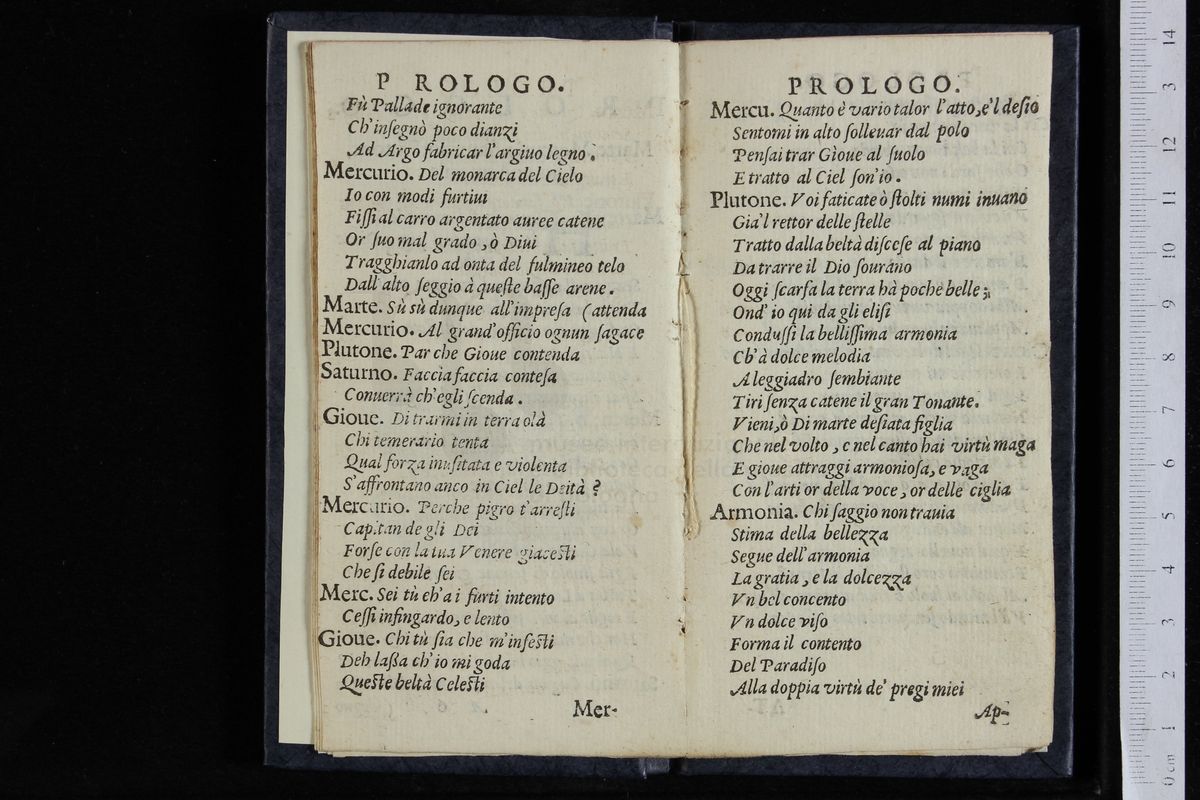 P ROLOGO.
Fù Pallade ignorante
Ch'inſegnò poco dianzi
Ad Argo fabricar l'argiuo legno.
Mercurio. Del monarca del Cielo
Io con modi furtiui
Fiſſi al carro argentato auree catene
Or ſuo mal grado, ò Diui
Tragghianlo ad onta del fulmineo telo
Dall'alto ſeggio à queſte baſſe arene.
Marte. Sù sù dunque all'impreſa (attenda
Mercurio. Al grand'officio ognun ſagace
Plutone. Par che Gioue contenda
Saturno. Faccia faccia conteſa
Conuerrà ch'egli ſcenda.
Gioue. Di trarmi in terra olà
Chi temerario tenta
Qual forza inuſitata e violenta
S'affrontano anco in Ciel le Deità?
Mercurio. Perche pigro t'arreſti
Capitan de gli Dei
Forſe con la tua Venere giaceſti
Che ſi debile ſei
Merc. Sei tù eh'a i furti intento
Ceſſi infingardo, e lento
Gioue. Chi tù ſia che m'infeſti
Deh laßa ch'io mi goda
Queſte beltà Celeſti
Mer-
PROLOGO.
Mercu. Quanto è vario talor l'atto, e'l deſio
Sentomi in alto ſolleuar dal polo
Penſai trar Gioue al ſuolo
E tratto al Ciel ſon'io.
Plutone. Voi faticate ò ſtolti numi inuano
Già'l rettor delle ſtelle
Tratto dalla beltà diſceſe al piano
Da trarre il Dio ſourano
Oggi ſcarſa la terra hà poche belle;
Ond' io qui da gli eliſi
Conduſſi la belliſſima armonia
Ch'à dolce melodia
A leggiadro ſembiante
Tiri ſenza catene il gran Tonante.
Vieni, ò Di marte deſiata figlia
Che nel volto, e nel canto hai virtù maga
E gioue attraggi armonioſa, e vaga
Con l'arti or della voce, or delle ciglia
Armonia. Chi ſaggio non trauia
Stima della bellezza
Segue dell'armonia
La gratia, e la dolcezza
Vn bel concento
Vn dolce viſo
Forma il contento
Del Paradiſo
Alla doppia virtù de' pregi miei
Ap-
14
13
12
11
10
9
8
7
6
5
4
3
2
1
0 cm